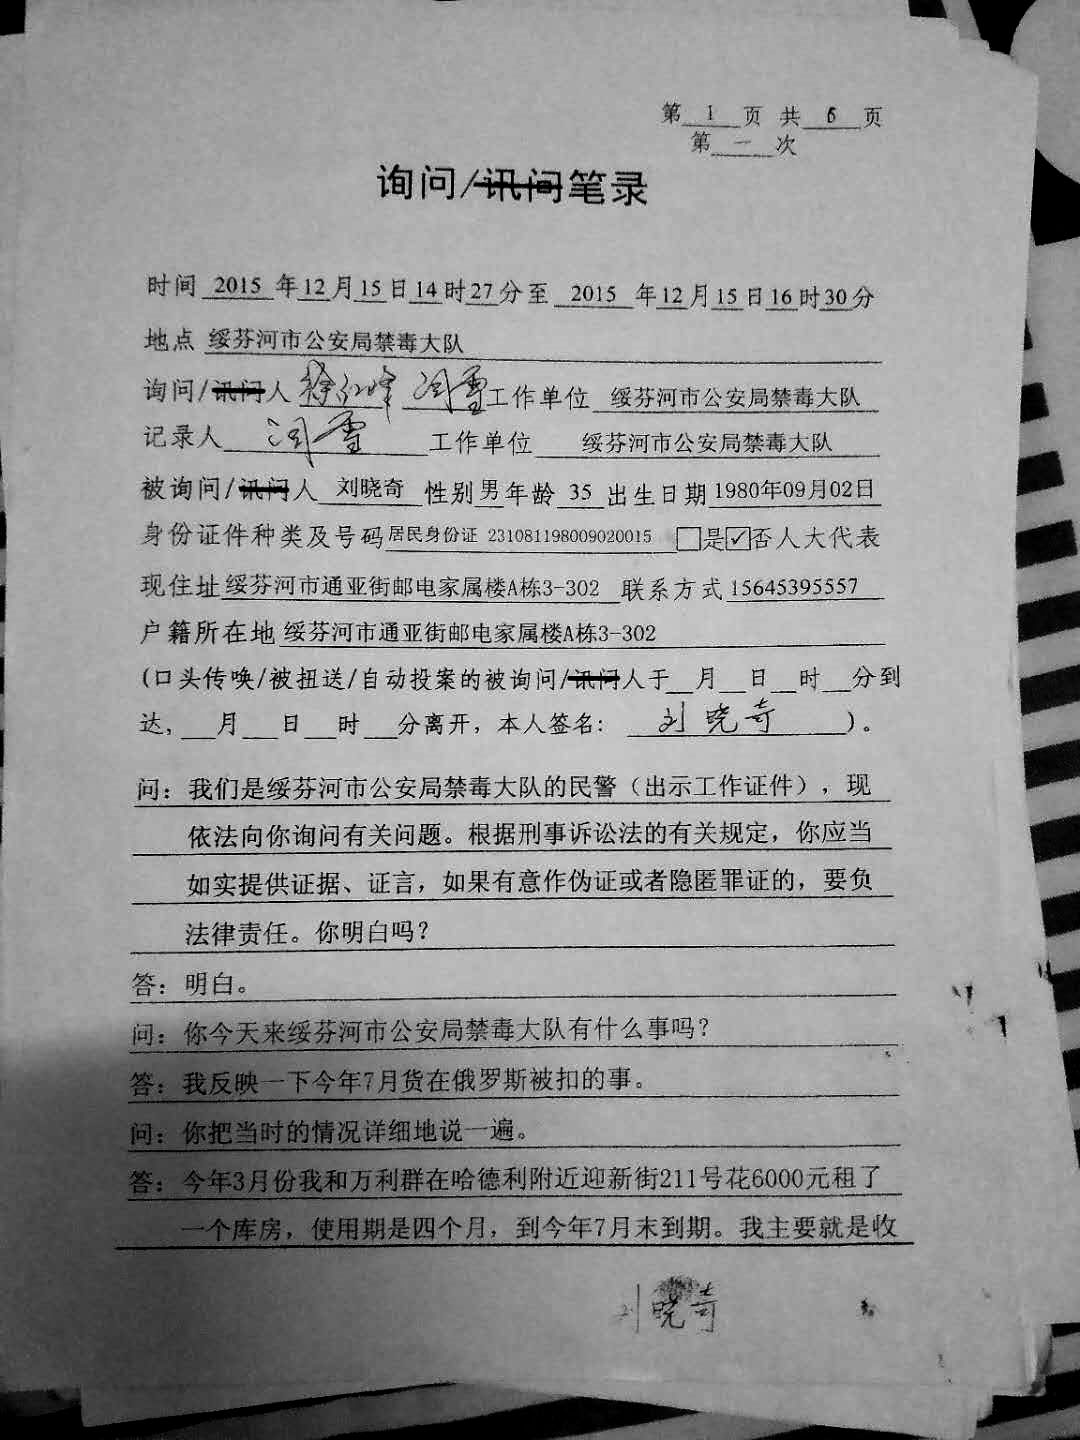 第 1 页 共 6 页
第 一 次
询问/讯问笔录
时间 2015 年12月15日14时27分至 2015 年12月15日16时30分
地点 绥芬河市公安局禁毒大队
询问/讯问人 徐红峰 闵雪 工作单位 绥芬河市公安局禁毒大队
记录人 闵雪 工作单位 绥芬河市公安局禁毒大队
被询问/讯问人 刘晓奇 性别 男 年龄 35 出生日期 1980年09月02日
身份证件种类及号码 居民身份证 231081198009020015 □是☑否人大代表
现住址 绥芬河市通亚街邮电家属楼A栋3-302 联系方式 15645395557
户籍所在地 绥芬河市通亚街邮电家属楼A栋3-302
(口头传唤/被扭送/自动投案的被询问/讯问人于__月__日__时__分到
达,__月__日__时__分离开,本人签名: 刘晓奇 )。
问:我们是绥芬河市公安局禁毒大队的民警(出示工作证件),现
依法向你询问有关问题。根据刑事诉讼法的有关规定,你应当
如实提供证据、证言,如果有意作伪证或者隐匿罪证的,要负
法律责任。你明白吗?
答:明白。
问:你今天来绥芬河市公安局禁毒大队有什么事吗?
答:我反映一下今年7月货在俄罗斯被扣的事。
问:你把当时的情况详细地说一遍。
答:今年3月份我和万利群在哈德利附近迎新街211号花6000元租了
一个库房,使用期是四个月,到今年7月末到期。我主要就是收
刘晓奇